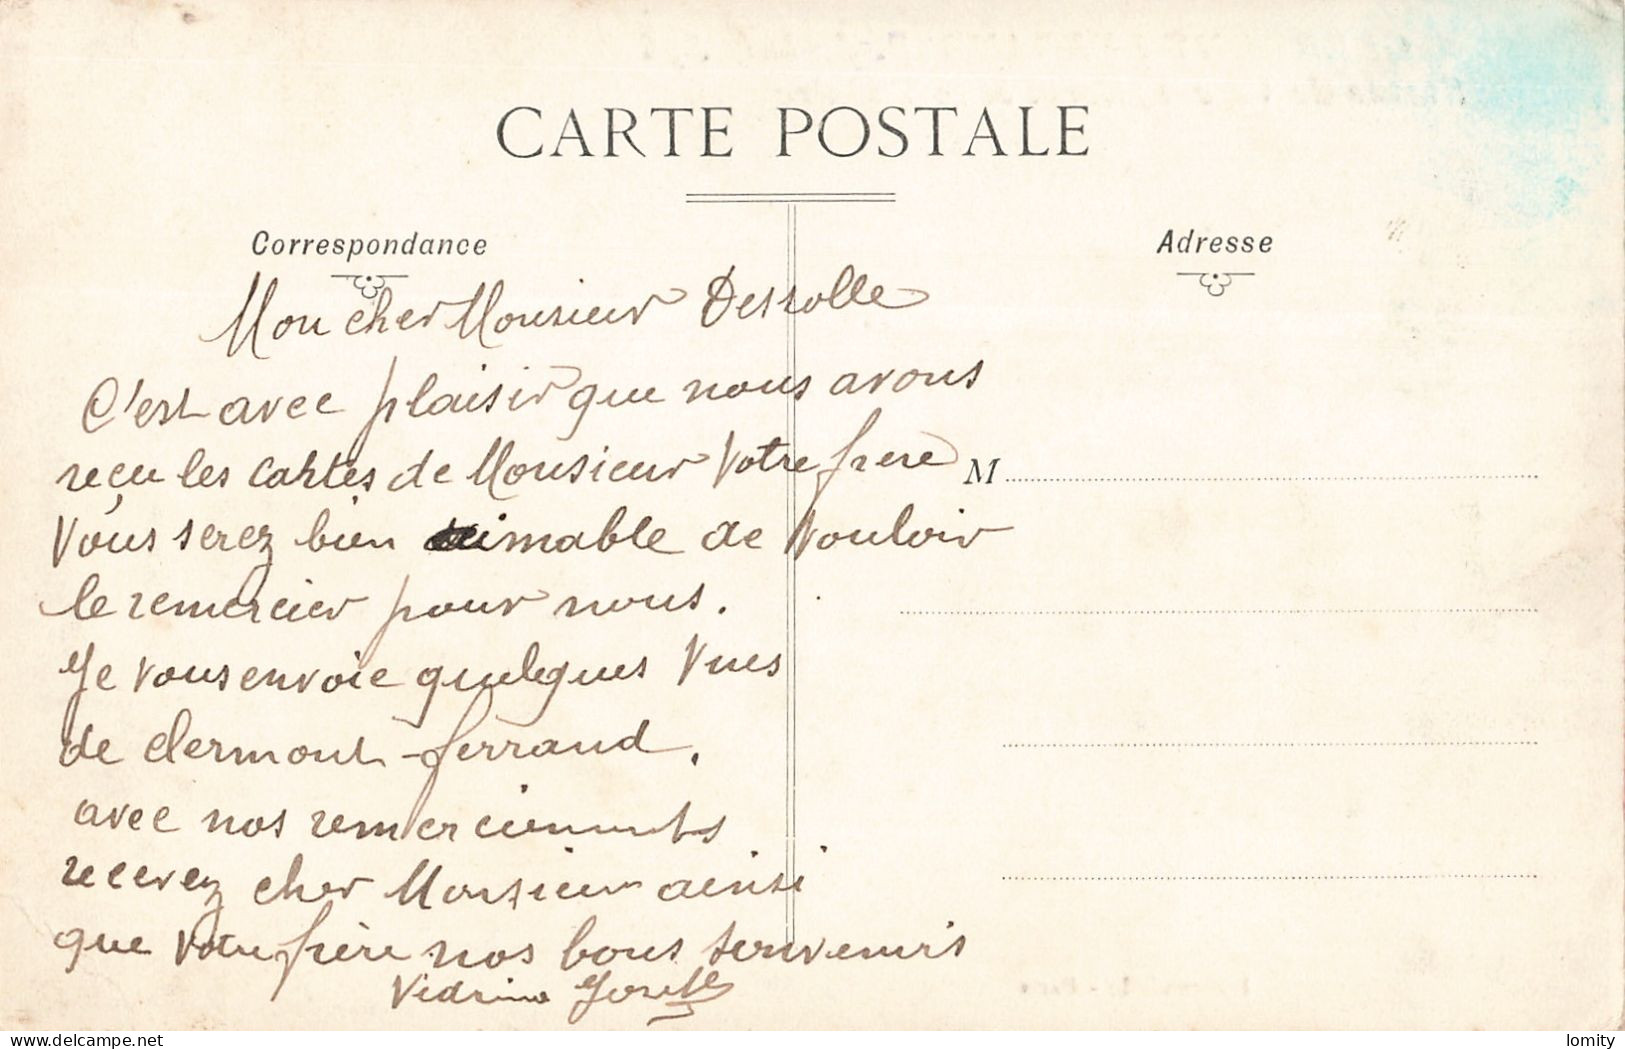 CARTE POSTALE
Correspondance
Adresse
Mon cher Monsieur Dessolle
C'est avec plaisir que nous avons
reçu les cartes de Monsieur votre frere
M
Vous serez bien aimable de vouloir
le remercier pour nous.
Je vous envoie quelques vues
de clermont-ferrand.
avec nos remerciements
recevez cher Monsieur ainsi
que votre frère nos bons souvenirs
Vedrine
www.delcampe.net
lomity